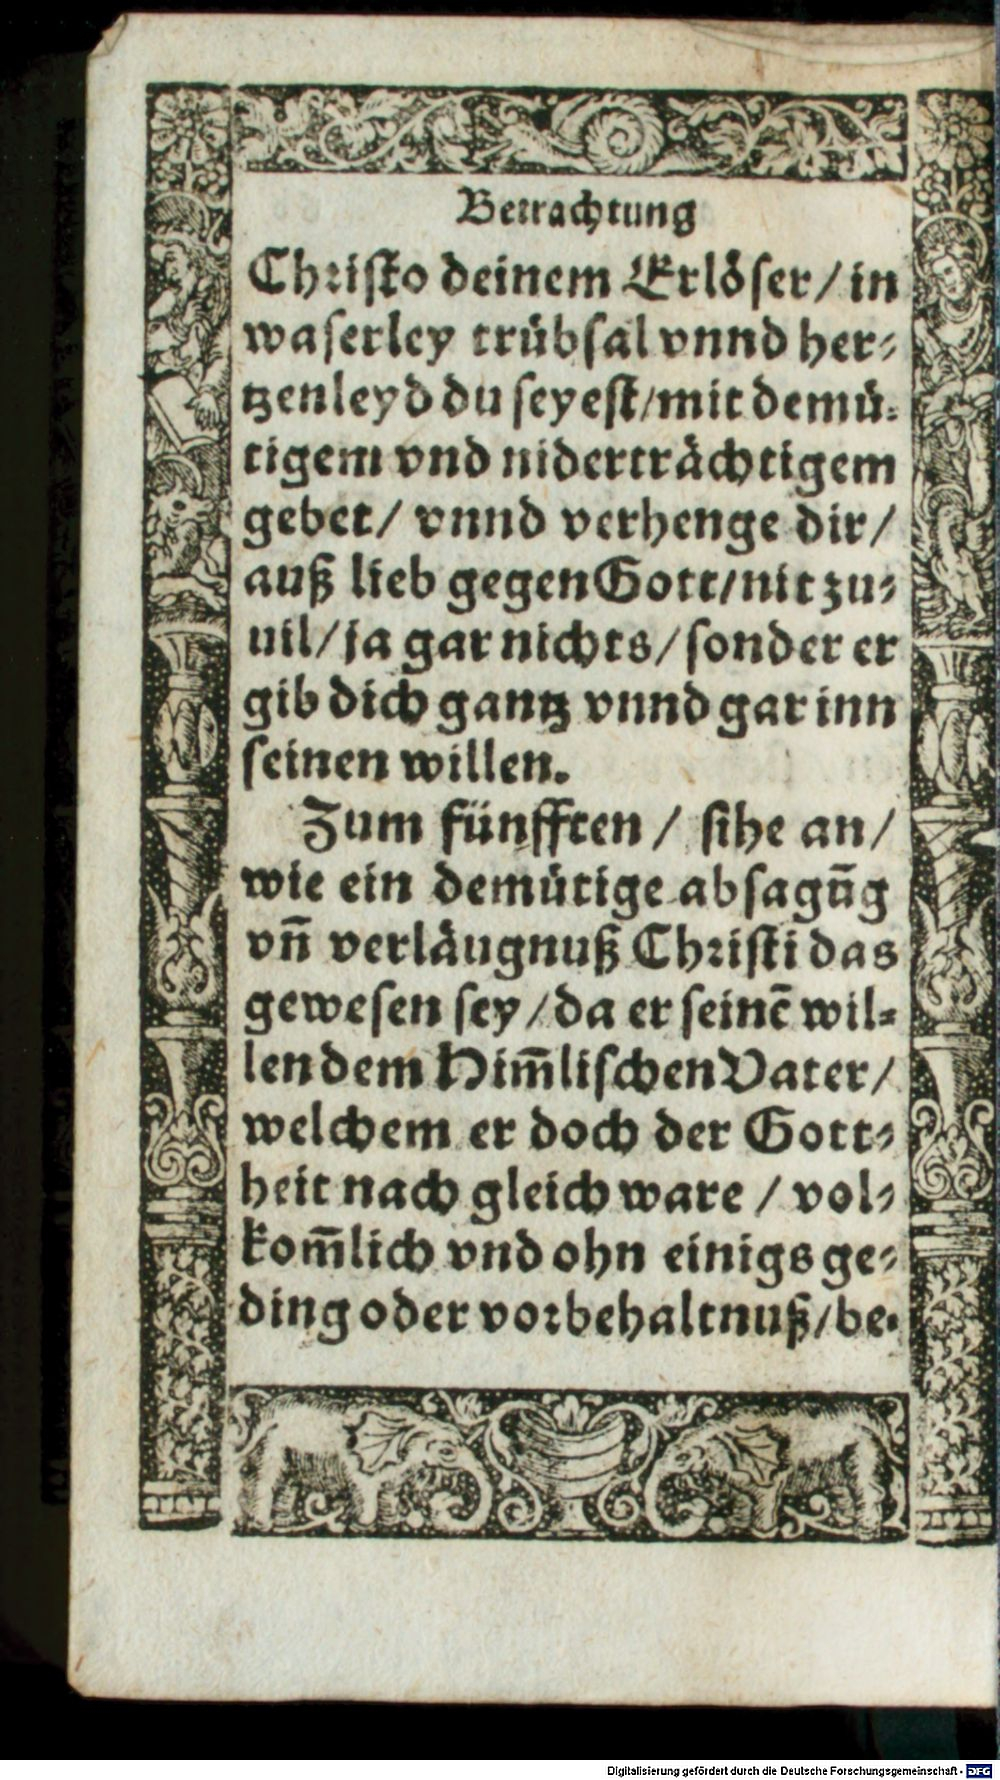 Betrachtung
Christo deinem Erlöser / in
waserley trübsal vnnd her⸗
tzenleyd du seyest / mit demü⸗
tigem vnd niderträchtigem
gebet / vnnd verhenge dir /
auß lieb gegen Gott / nit zu⸗
uil / ja gar nichts / sonder er
gib dich gantz vnnd gar inn
seinen willen.
Zum fünfften / sihe an /
wie ein demütige absagūg
vn̄ verläugnuß Christi das
gewesen sey / da er seinē wil⸗
len dem Him̄lischen Vater /
welchem er doch der Gott⸗
heit nach gleich ware / vol⸗
kom̄lich vnd ohn einigs ge⸗
ding oder vorbehaltnuß / be⸗
Digitalisierung gefördert durch die Deutsche Forschungsgemeinschaft - DFG